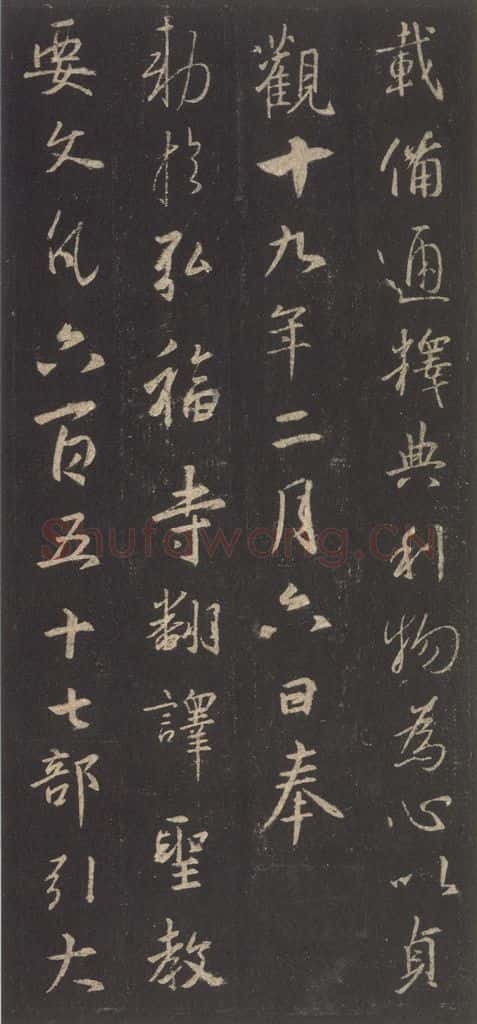 載備通釋典利物為心以貞
觀十九年二月六日奉
勅於弘福寺翻譯聖教
要文凡六百五十七部引大
Shufawang.CN